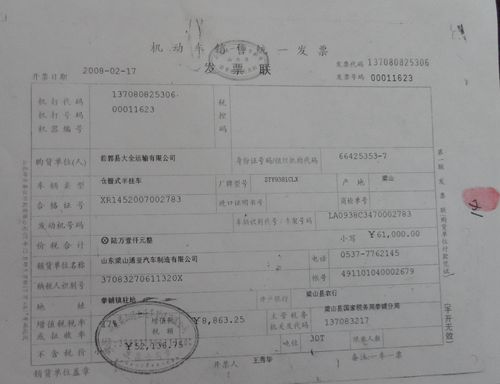 机动车销售统一发票
发票联
发票代码 137080825306
发票号码 00011623
开票日期 2008-02-17
机打代码 137080825306
机打号码 00011623
机器编号
税控码
购货单位(人) 郓郭县大全运输有限公司 身份证号码/组织机构代码 66425353-7
车辆类型 仓栅式半挂车 厂牌型号 STY9381CLX 产地 梁山
合格证号 XR1452007002783 进口证明书号 商检单号
发动机号码 车辆识别代号/车架号码 LA0938C3470002783
价税合计 ⊗陆万壹仟元整 小写 ¥61,000.00
销货单位名称 山东梁山通亚汽车制造有限公司 电话 0537-7762145
纳税人识别号 37083270611320X 帐号 491101040002679
地址 拳铺镇驻地 开户银行 梁山县农行
增值税税率或征收率 17% 增值税税额 ¥8,863.25 主管税务机关及代码 梁山县国家税务局拳铺分局 137083217
不含税价 ¥52,136.75 吨位 30T 限乘人数
销货单位盖章 开票人 王秀华 备注:一车一票
第一联 发票联(购货单位付款凭证)
(手开无效)